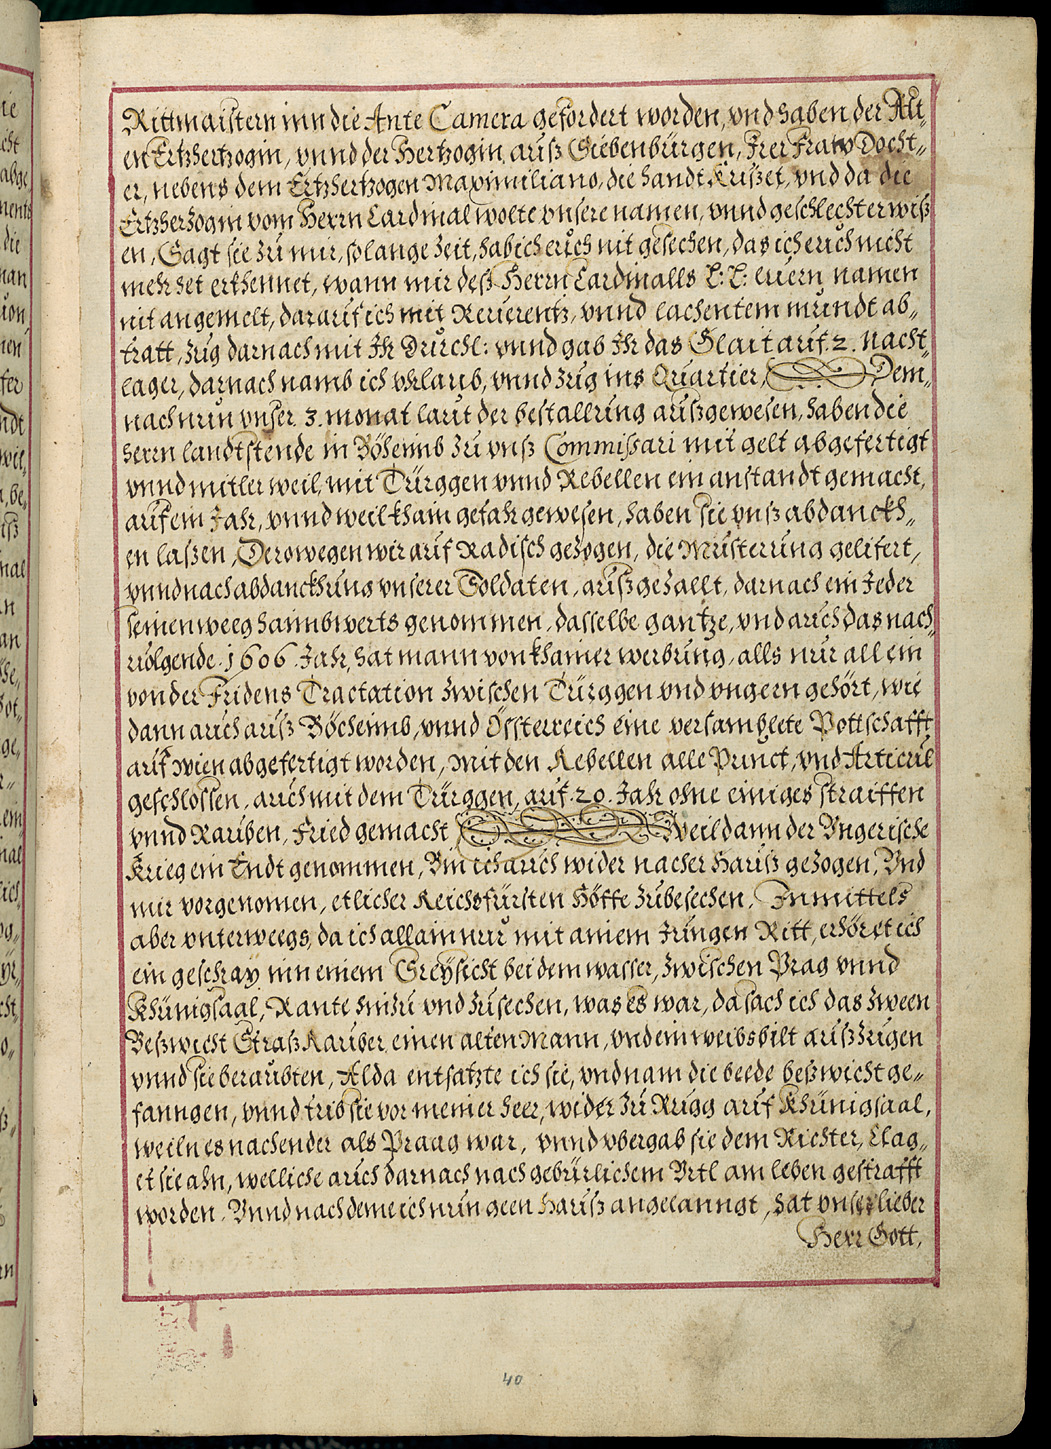 Rittmaistern inn die Ante Camera gefordert worden, vnd haben der Alt„
en Ertzhertzogin, vnnd der Hertzogin auß Siebenbürgen, Irer Fraw Docht„
er, nebens dem Ertzhertzogen Maximiliano, die handt küßet, vnd da die
Ertzherzogin vom Herrn Cardinal wolte vnsere namen, vnnd geschlechter wiß
en, Sagt sie zu mir, so lange Zeit, hab ich euch nit gesechen, das ich euch nicht
mehr het erkhennet, wann mir deß Herrn Cardinalls L: L: euern namen
nit angemelt, darauf ich mit Reuerentz, vnnd lachentem mundt ab„
tratt, Zug darnach mit Ihr Durchl: vnnd gab Ihr das Glait auf .2. nacht„
lager, darnach namb ich vhrlaub, vnnd Zug ins Quartier, Dem„
nach nun vnser .3. monat laut der bestallung auß gewesen, haben die
herrn landtstende in Böhemb zu vnß Commißari mit gelt abgefertigt
vnnd mitler weil, mit Türggen vnnd Rebellen ein anstandt gemacht,
auf ein Jahr, vnnd weil kham gefahr gewesen, haben sie vnß abdanckh„
en laßen, Derowegen wir auf Radisch gezogen, die Musterung gelifert,
vnnd nach abdanckhung vnserer Soldaten, auß gezallt, darnach ein Jeder
seinen weeg haimbwerts genommen, dasselbe gantze, vnd auch das nach„
uolgende .1606. Jahr, hat mann von khainer werbung, alls nur allein
von der Fridens Tractation zwischen Türggen vnd vngern gehört, wie
dann auch auß Böchemb, vnnd Össterreich eine versamblete Pottschafft
auf wien abgefertigt worden, mit den Rebellen alle Punct, vnd Articul
geschlossen, auch mit dem Türggen, auf .20. Jahr ohne einiges straiffen
vnnd Rauben, Fried gemacht Weil dann der Vngerische
Krieg ein Endt genommen, Bin ich auch wider nacher Hauß gezogen, Vnd
mir vorgenomen, etlicher Reichsfürsten Höffe zu besechen, Inmittels
aber vnterweegs, da ich allain nur mit ainem Jungen Ritt, erhöret ich
ein geschray inn einem Greysicht bei dem wasser, zwischen Prag vnnd
Khünigsaal, Rante hinzu vnd zusechen, was es war, da sach ich das zween
Beßwicht Straß Rauber, einen alten Mann, vnd ein weibsbilt auß zugen
vnnd sie beraubten, Alda entsatzte ich sie, vnd nam die beede beßwicht ge„
fanngen, vnnd trib sie vor meiner heer, wider zu Rugg auf Khünigsaal,
weiln es nachender als Praag war, vnnd vbergab sie dem Richter, Clag„
et sie ahn, welliche auch darnach nach gebürlichem Vrtl am leben gestrafft
worden. Vnnd nach deme ich nun geen Hauß angelanngt, hat vnser lieber
Herr Gott,
40